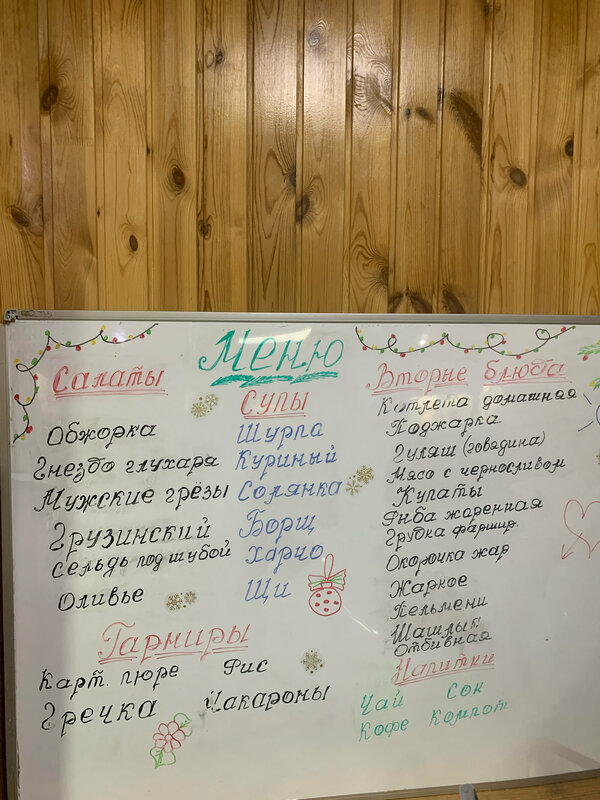 Меню
Салаты
Обжорка
Гнездо глухаря
Мужские грёзы
Грузинский
Сельдь под шубой
Оливье
Супы
Шурпа
Куриный
Солянка
Борщ
Харчо
Щи
Вторые блюда
Котлета домашняя
Поджарка
Гуляш (говядина)
Мясо с черносливом
Купаты
Рыба жаренная
Грудка фаршир.
Окорочка жар
Жаркое
Пельмени
Шашлык
Отбивная
Гарниры
Карт. пюре
Рис
Гречка
Макароны
Напитки
Чай
Сок
Кофе
Компот